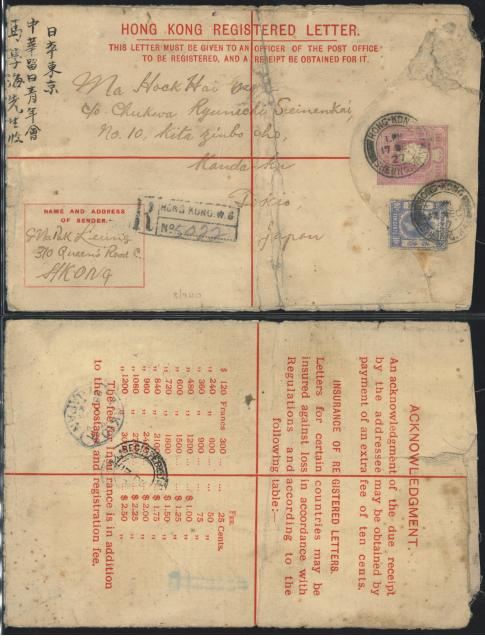 HONG KONG REGISTERED LETTER.
THIS LETTER MUST BE GIVEN TO AN OFFICER OF THE POST OFFICE
TO BE REGISTERED, AND A RECEIPT BE OBTAINED FOR IT.
日本東京
中華留日青年會
馬學海先生收
Ma Hock Hai Esq
c/o Chukwa Ryunichi Seinenkai,
No. 10, Kita Jinbo cho,
Kanda-ku
Tokio,
Japan
HONG KONG
NAME AND ADDRESS
OF SENDER.
Leung
310 Queen's Road C.
H'KONG
R
HONG KONG. W.B
No 5022
ACKNOWLEDGMENT.
An acknowledgment of the due receipt
by the addressee may be obtained by
payment of an extra fee of ten cents.
INSURANCE OF REGISTERED LETTERS.
Letters for certain countries may be
insured against loss in accordance with
Regulations and according to the
following table:—
FEE.
$ 120 Francs 300 ... 25 Cents.
" 240 " 600 ... 50 "
" 360 " 900 ... 75 "
" 480 " 1200 ... $ 1.00
" 600 " 1500 ... $ 1.25
" 720 " 1800 ... $ 1.50
" 840 " 2100 $ 1.75
" 960 " $ 2.00
" 1080 " $ 2.25
" 1200 " $ 2.50
The fee for insurance is in addition
to the postage and registration fee.
REGISTERED